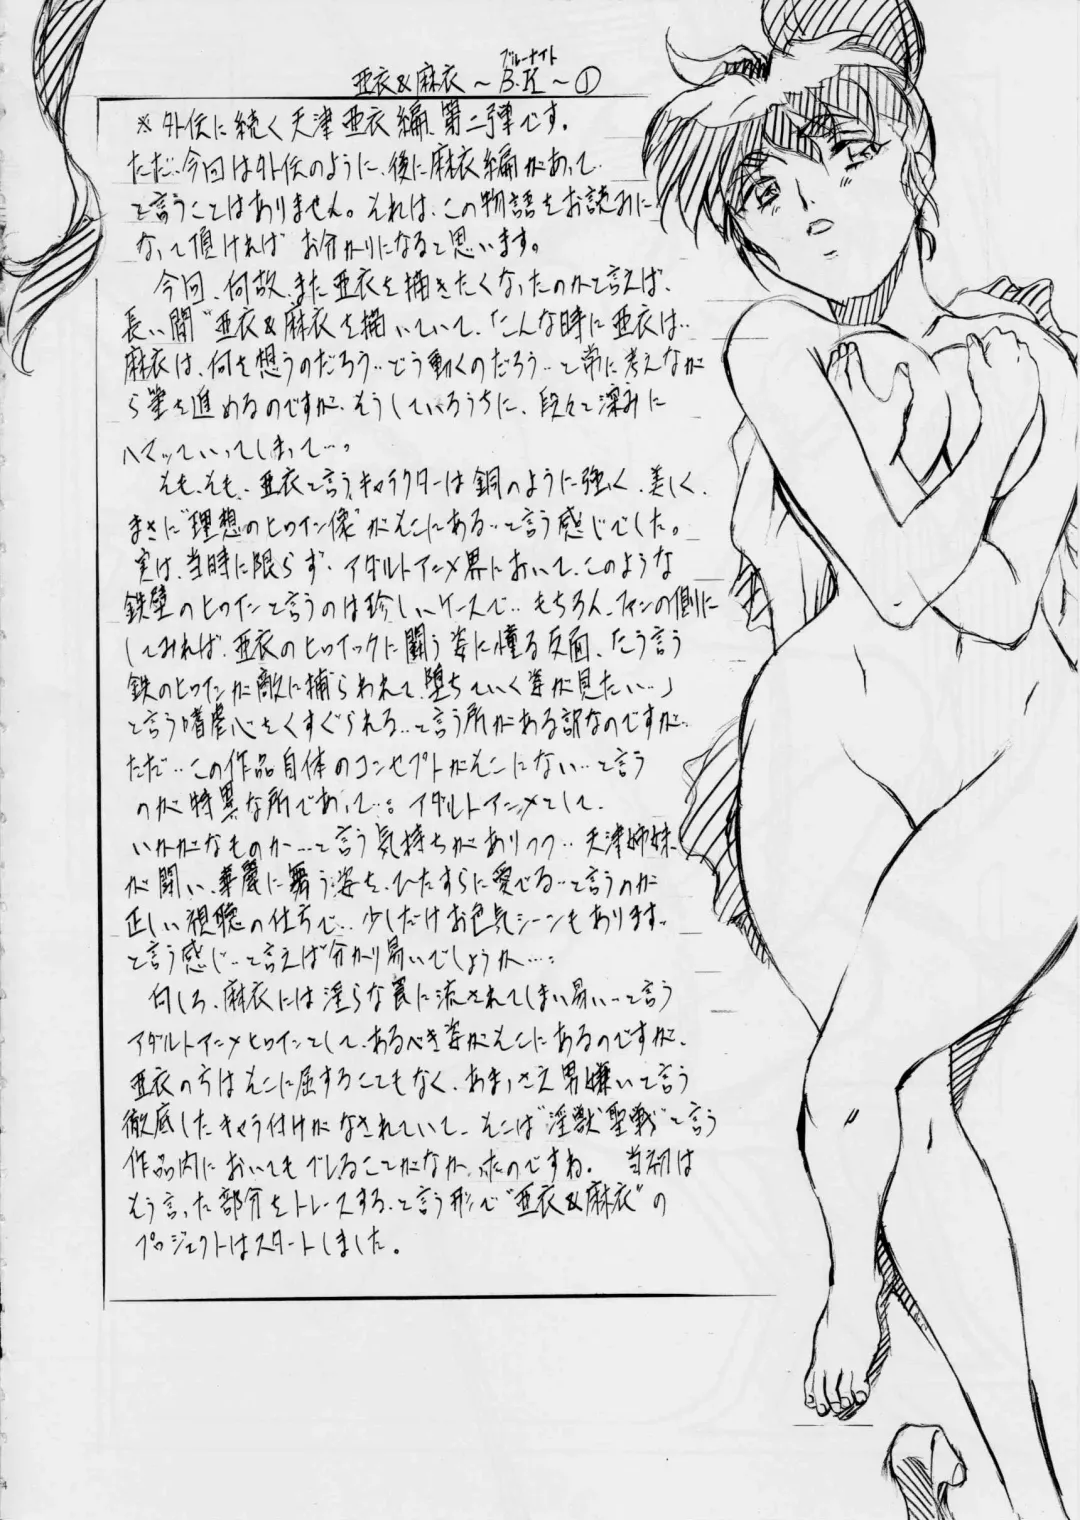 ブルーナイト
亜衣&麻衣 ～B.K～①
※外伝に続く天津亜衣編、第二弾です。
ただ、今回は外伝のように、後に麻衣編があって
と言うことはありません。それは、この物語をお読みに
なって頂ければ お分かりになると思います。
今回、何故、また亜衣を描きたくなったのかと言えば、
長い間"亜衣&麻衣を描いていて、「こんな時に亜衣は‥
麻衣は、何を想うのだろう‥どう動くのだろう‥と常に考えなが
ら筆を進めるのですが、そうしているうちに、段々と深みに
ハマッていってしまって…。
そもそも、亜衣と言うキャラクターは鋼のように強く、美しく、
まさに"理想のヒロイン像"がそこにある‥と言う感じでした。
実は、当時に限らず、アダルトアニメ界において、このような
鉄壁のヒロインと言うのは珍しいケースで‥もちろん、ファンの側に
してみれば、亜衣のヒロイックに闘う姿に憧る反面、こう言う
鉄のヒロインが敵に捕らわれて、堕ちていく姿が見たい‥」
と言う嗜虐心をくすぐられる‥と言う所がある訳なのですが‥
ただ‥この作品自体のコンセプトがそこにない‥と言う
のが特異な所であって…。アダルトアニメとして、
いかがなものか…と言う気持ちがありつつ‥天津姉妹
が闘い、華麗に舞う姿を、ひたすらに愛でる‥と言うのが
正しい視聴の仕方で‥少しだけお色気シーンもあります‥
と言う感じ‥と言えば分かり易いでしょうか…。
何しろ、麻衣には淫らな罠に流されてしまい易い‥と言う
アダルトアニメヒロインとして、あるべき姿がそこにあるのですが、
亜衣の方はそこに屈することもなく、あまっさえ男嫌いと言う
徹底したキャラ付けがなされていて、そこは"淫獣聖戦"と言う
作品内においてもブレることがなかったのですね。 当初は
そう言った部分をトレースする、と言う形で"亜衣&麻衣"の
プロジェクトはスタートしました。